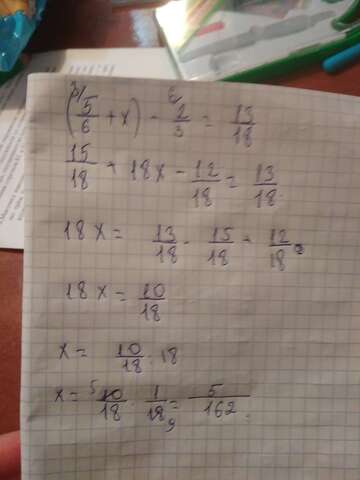 3/ 6
(5/6 + x) - 2/3 = 13/18
15/18 + 18x - 12/18 = 13/18.
18x = 13/18 - 15/18 + 12/18
18x = 10/18
x = 10/18 : 18
x = 5 10/18 · 1/18 9 = 5/162.